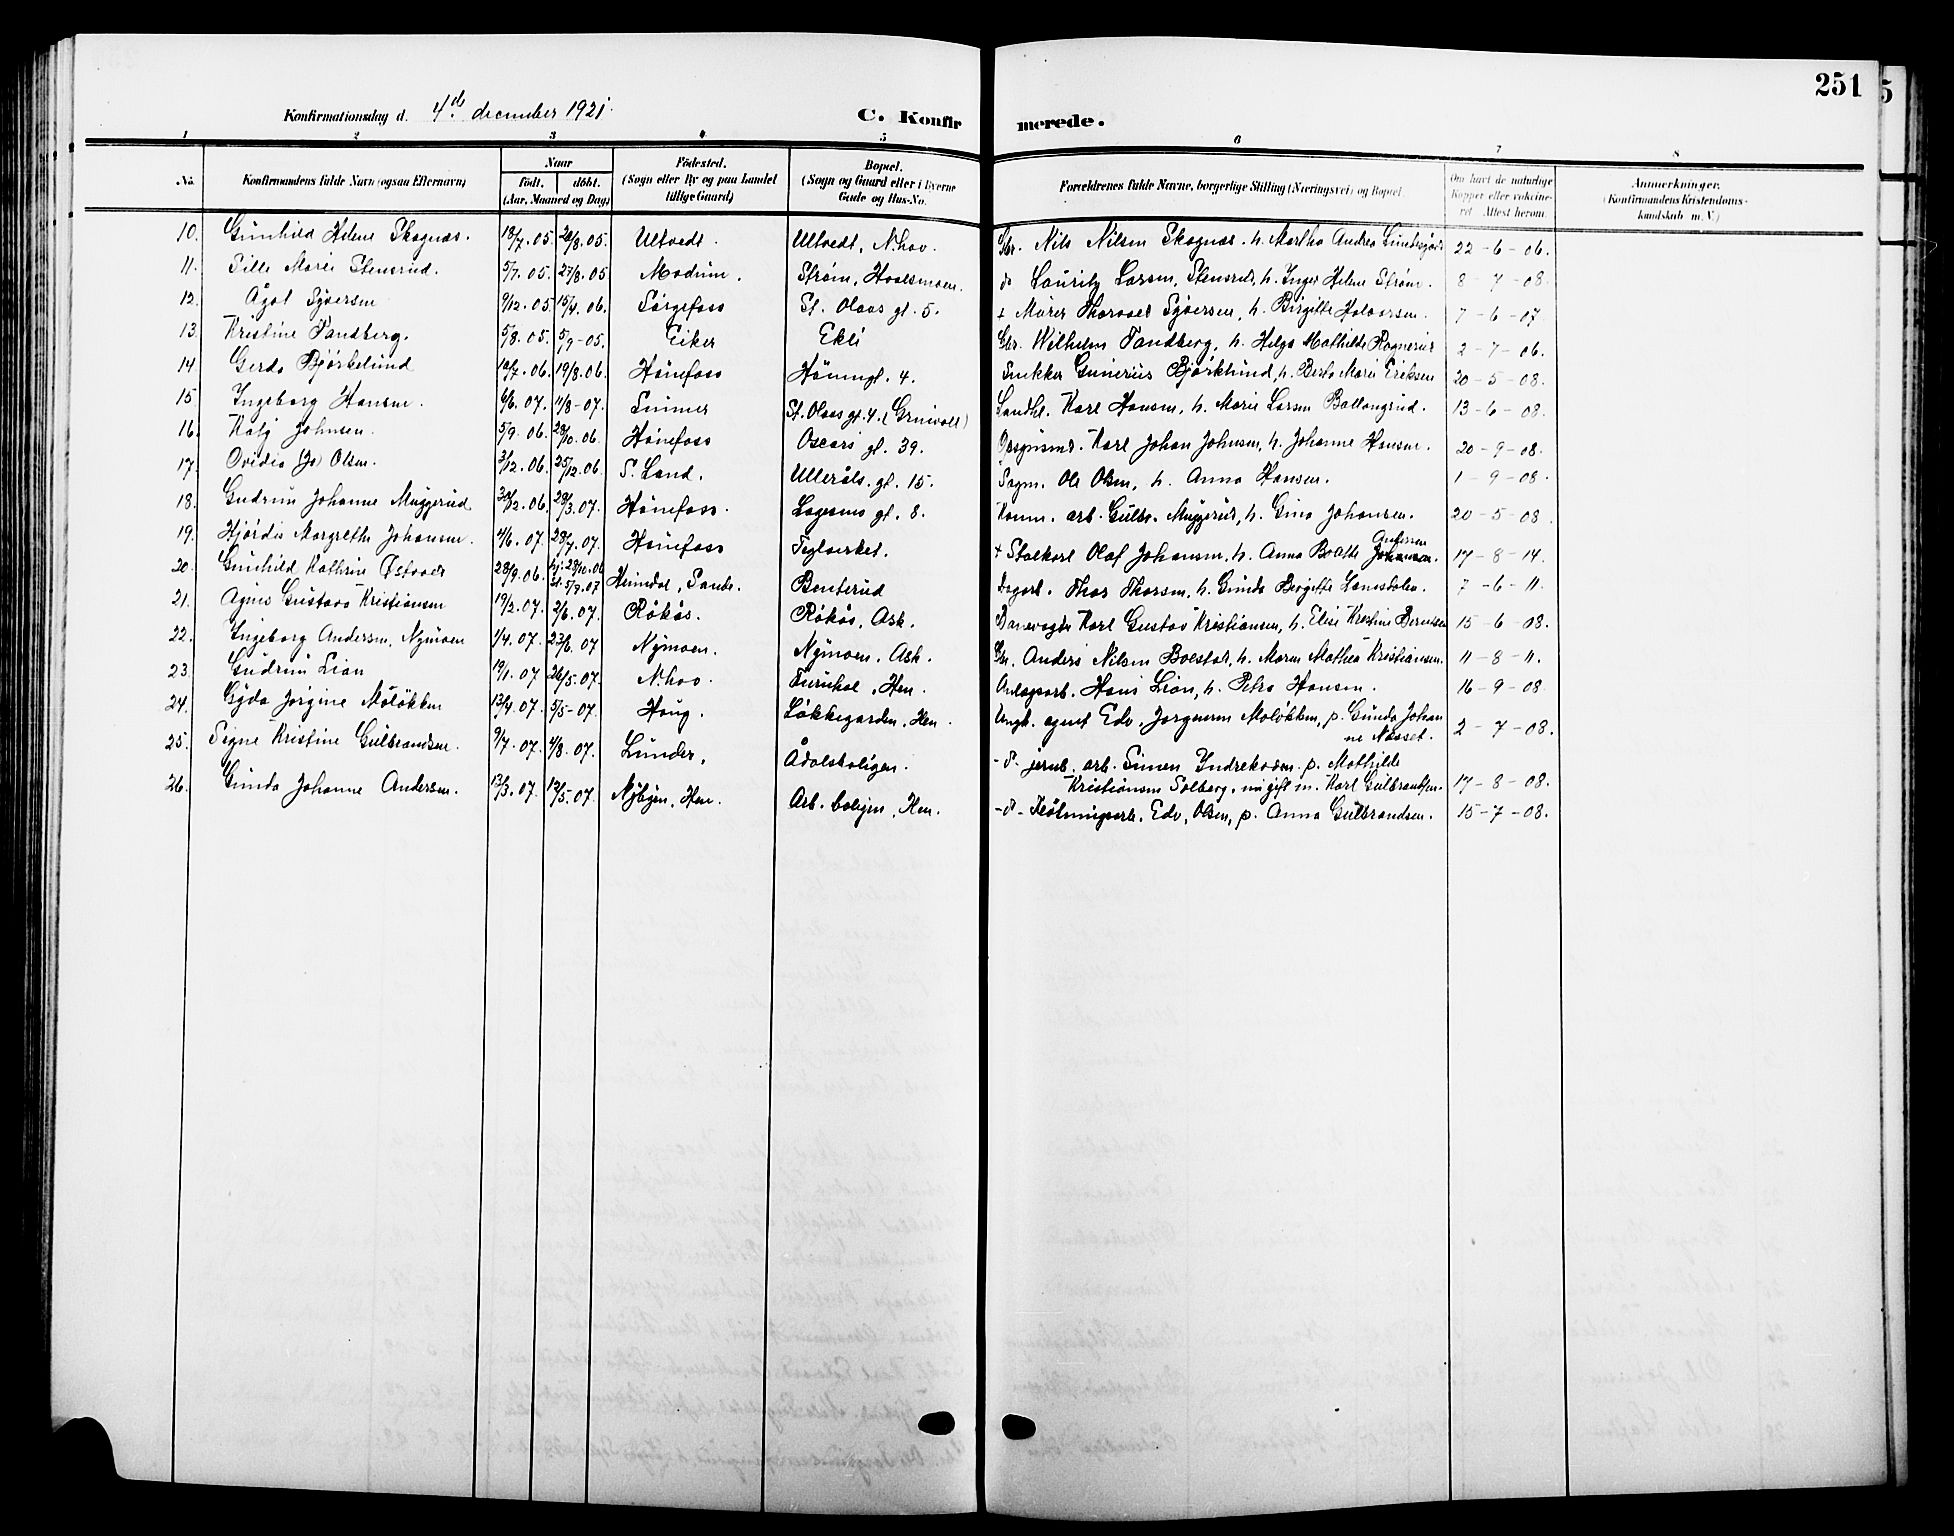 251
5
Konfirmationsdag d. 4de december 1921. C. Konfirmerede.
1 2 3 4 5 6 7 8
No. Konfirmandens fulde Navn (ogsaa Efternavn) Naar født. døbt. (Aar, Maaned og Dag) Fødested. (Sogn eller By og paa Landet tillige Gaard) Bopæl. (Sogn og Gaard eller i Byerne Gade og Hus-No. Forældrenes fulde Navne, borgerlige Stilling (Næringsvei) og Bopæl. Om havt de naturlige Kopper eller vakcineret. Attest herom. Anmerkninger. (Konfirmandens Kristendomskundskab m. V.)
10. Gunhild Helene Skagnæs. 18/7.05. 20/8.05. Ultvedt. Ultvedt, N.hov. Gbr. Nils Nilsen Skagnæs. h. Martha Andrea 22-6-06.
11. Sille Marie Stensrud. 5/7.05. 27/8.05 Modum. Strøm, Haalsmoen. do Lauritz Larsen, Stensrud, h. Inger Helene Strøm. 8-7-08.
12. Ågot Syversen 9/12.05 15/4.06. Sørgefoss St. Olavs gt. 5. + Murer Thorvald Syversen, h. Birgitte Halvorsen. 7-6-07
13. Kristine Tandberg. 5/8.05. 5/9-05. Eiker Ekli Gbr. Wilhelm Tandberg, h. Helga Mathilde Rognerud 2-7-06.
14 Gerda Bjørkelund 12/7.06. 19/8.06. Hønefoss Hønengt. 4. Snekker Gunerius Bjørklund, h. Berta Marie Eriksen 20-5-08.
15 Ingeborg Hansen. 6/6.07. 11/8-07. St. Olavs gt. 4. Landh. Karl Hansen, h. Marie Larsen Ballangrud. 13-6-08.
16. Johnsen. 5/9.06. 28/10.06. Hønefoss Oscars gt. 39. Karl Johan Johnsen, h. Johanne Hansen. 20-9-08.
17. Ovidia (Js) Olsen. 3/12.06. 25/12.06. S. Land. Ulleråls. gt. 15. Sagm. Ole Olsen, h. Anna Hansen. 1-9-08.
18. Gudrun Johanne Muggerud 30/12.06. 29/3.07. Hønefoss. gt. 8. Komm. arb. Gulbr. Muggerud, h. Gina Johansen. 20-5-08.
19. Hjørdis Margrethe Johansen. 4/6.07. 28/7.07. Hønefoss Teglverket. + Stalkarl Olaf Johansen, h. Anna Beatte Johansen. Andersen 17-8-14.
20. Gunhild Kathrine Østvold 28/9.06. hj. 23/11.06 st. 5/9.07 Heimdal, Benterud Dagarb. Thor Thorsen, h. Gunda Birgitte 7-6-11.
21. Agnes Gustava Kristiansen 19/2.07. 2/6.07. Råkås. Råkås, Ask. Banevogter Karl Gustav Kristiansen, h. Elise Kristine Berntsen 15-6-08.
22. Ingeborg Andersen, Nymoen 1/4.07. 23/6.07 Nymoen. Nymoen. Ask. Gbr. Anders Nilsen Boestad, h. Maren Mathea Kristiansen. 11-8-11.
23. Gudrun Lian 19/1.07 26/5.07. N.hov. Furuhol, Hen. Anlægsarb. Hans Lian, h. Petra Hansen. 16-9-08
24. Gyda Jørgine Moløkken 13/4.07. 5/5-07. Haug. Løkkegarden, Hen. Ungk. agent Edv. Jørgensen Moløkken, p. Gunda Johanne Næsset. 2-7-08.
25. Signe Kristine Gulbrandsen. 9/7.07. 4/8.07. Lunder. Ådalsboligen. -d. jernb. arb. Simen p. Mathilde
Kristiansen Solberg, nu gift m. Karl Gulbrandsen. 17-8-08.
26. Gunda Johanne Andersen. 13/3.07. 12/5.07. Nybyen, Hen. Arb. boligen, Hen. -d- Fløtningsarb. Edv, Olsen, p. Anna Gulbrandsen. 15-7-08.